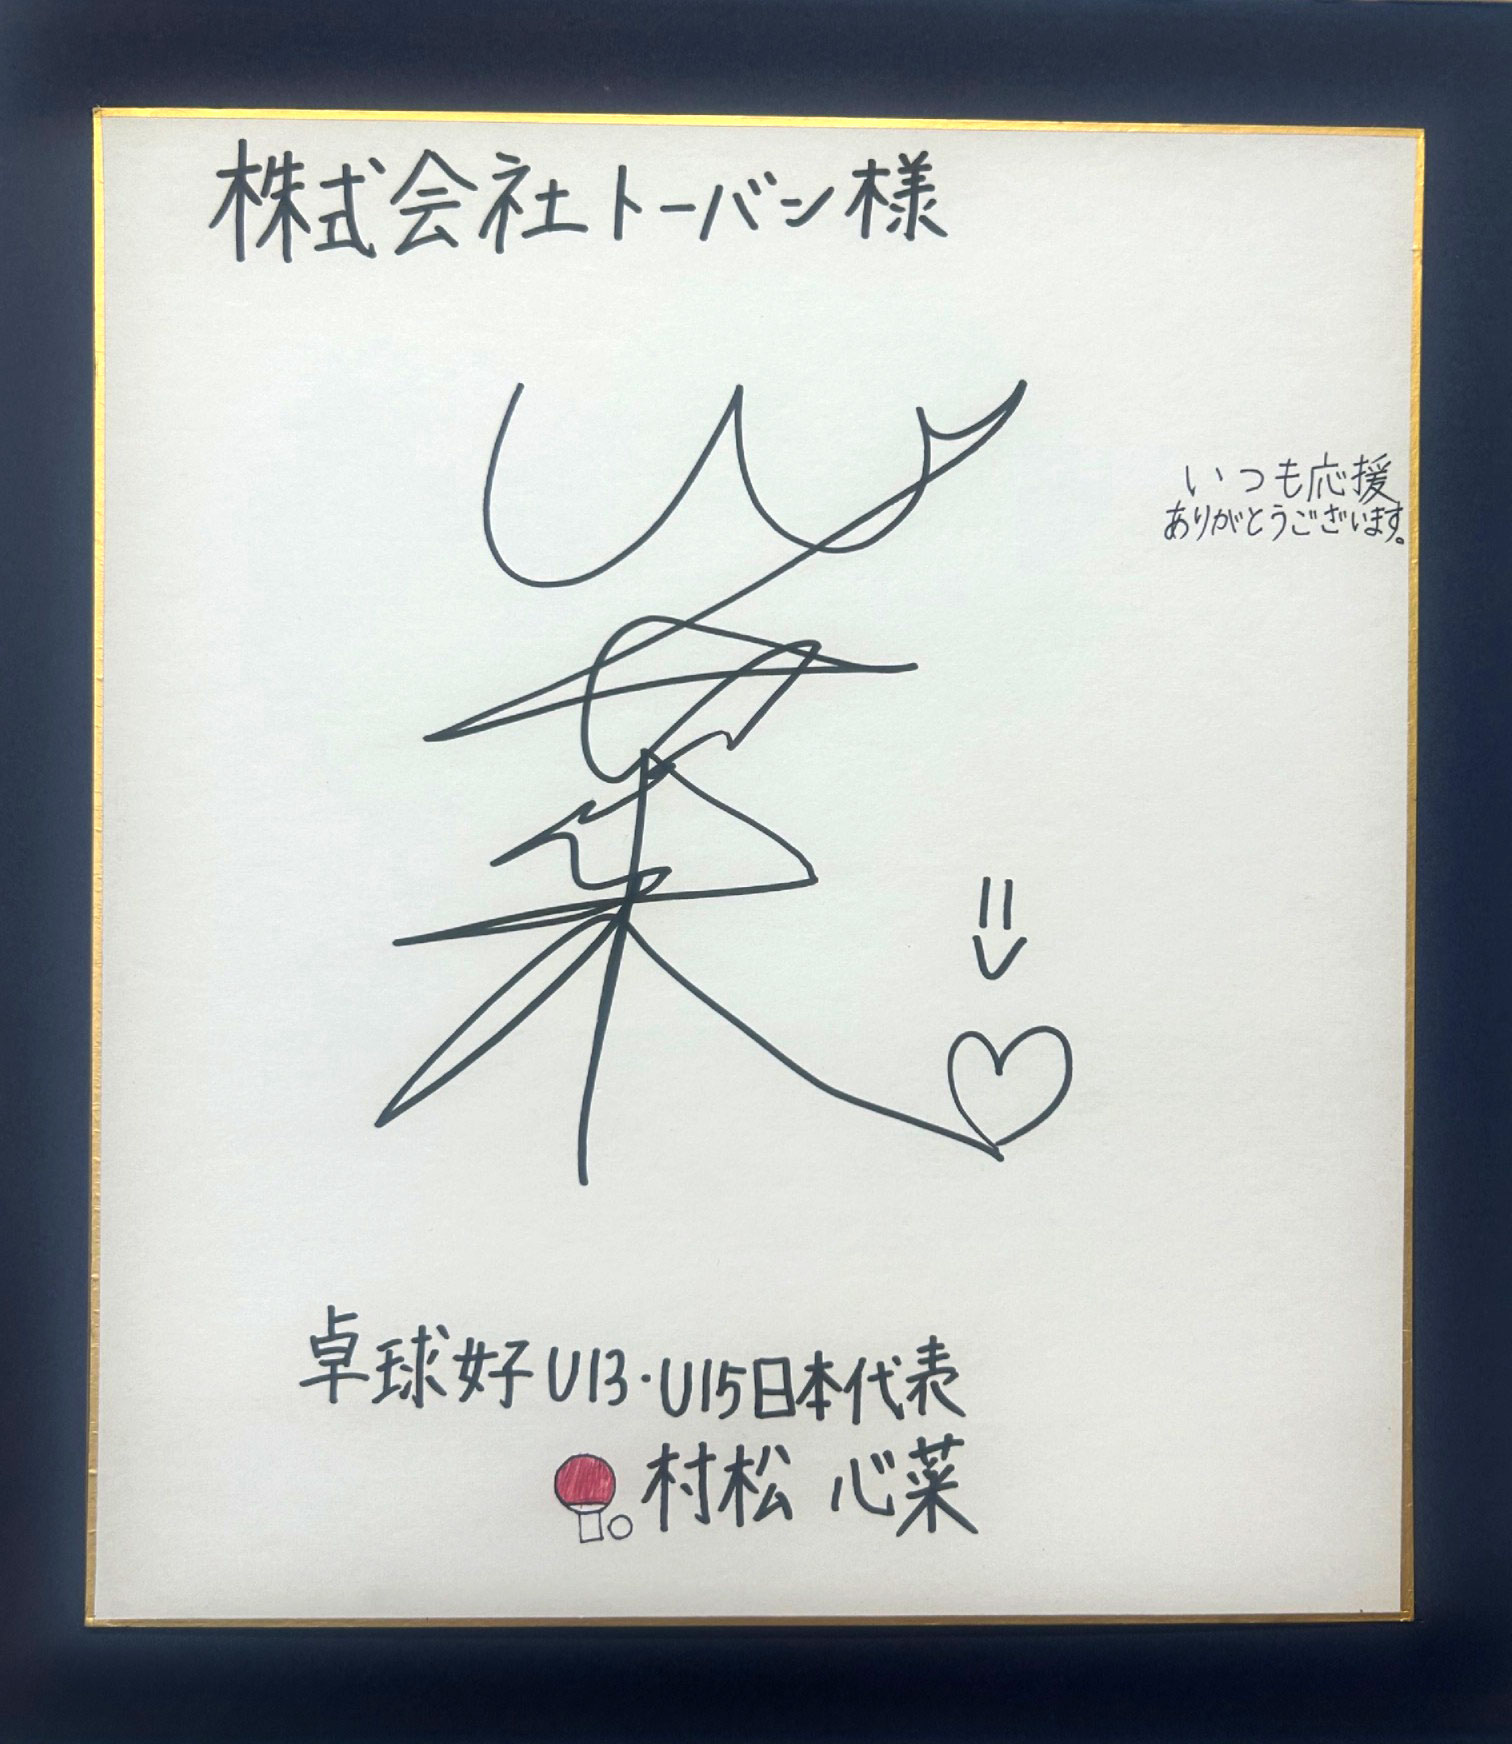 株式会社トーバン様
いつも応援
ありがとうございます。
卓球好U13・U15日本代表
村松 心菜